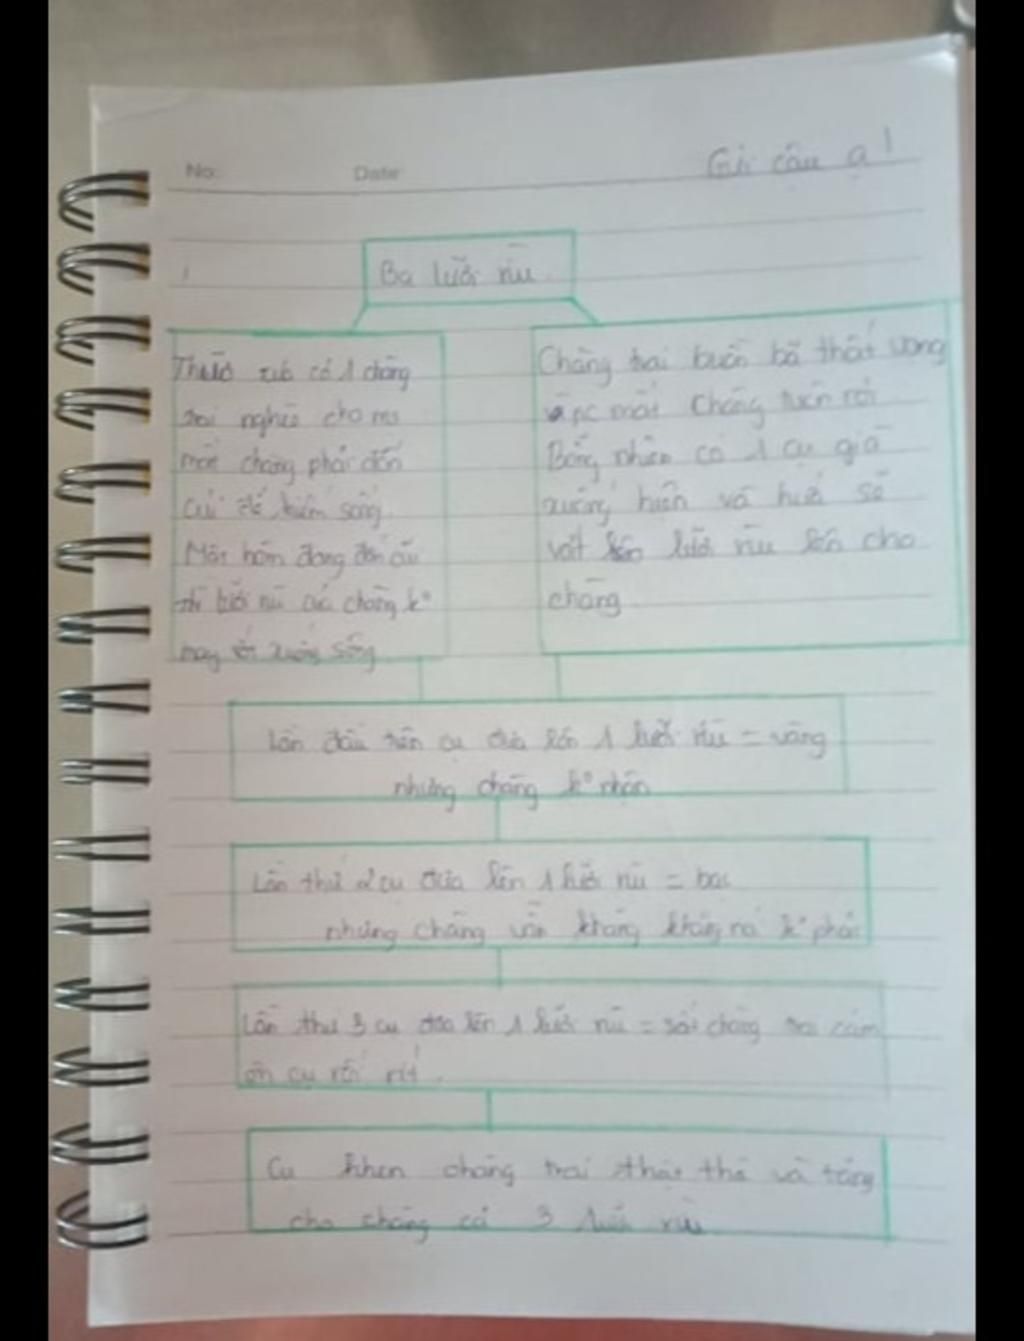 No:
Date:
Gửi cậu ạ!
Ba lưỡi rìu
có 1 chàng
trai nghèo cha mẹ
mất chàng phải đốn
củi để kiếm sống
Một hôm đang đốn củi
thì lưỡi rìu của chàng k°
may rơi xuống sông
Chàng trai buồn bã thất vọng
mặt chàng
Bỗng nhiên có 1 cụ già
hiện và hứa sẽ
vớt lưỡi rìu lên cho
chàng
Lần đầu tiên cụ đưa lên 1 lưỡi rìu = vàng
nhưng chàng k° nhận
Lần thứ 2 cụ đưa lên 1 lưỡi rìu = bạc
nhưng chàng vẫn khăng khăng nó k° phải
Lần thứ 3 cụ đưa lên 1 lưỡi rìu = sắt chàng trai cảm
ơn cụ rối rít.
Cụ khen chàng trai thật thà và tặng
cho chàng cả 3 lưỡi rìu